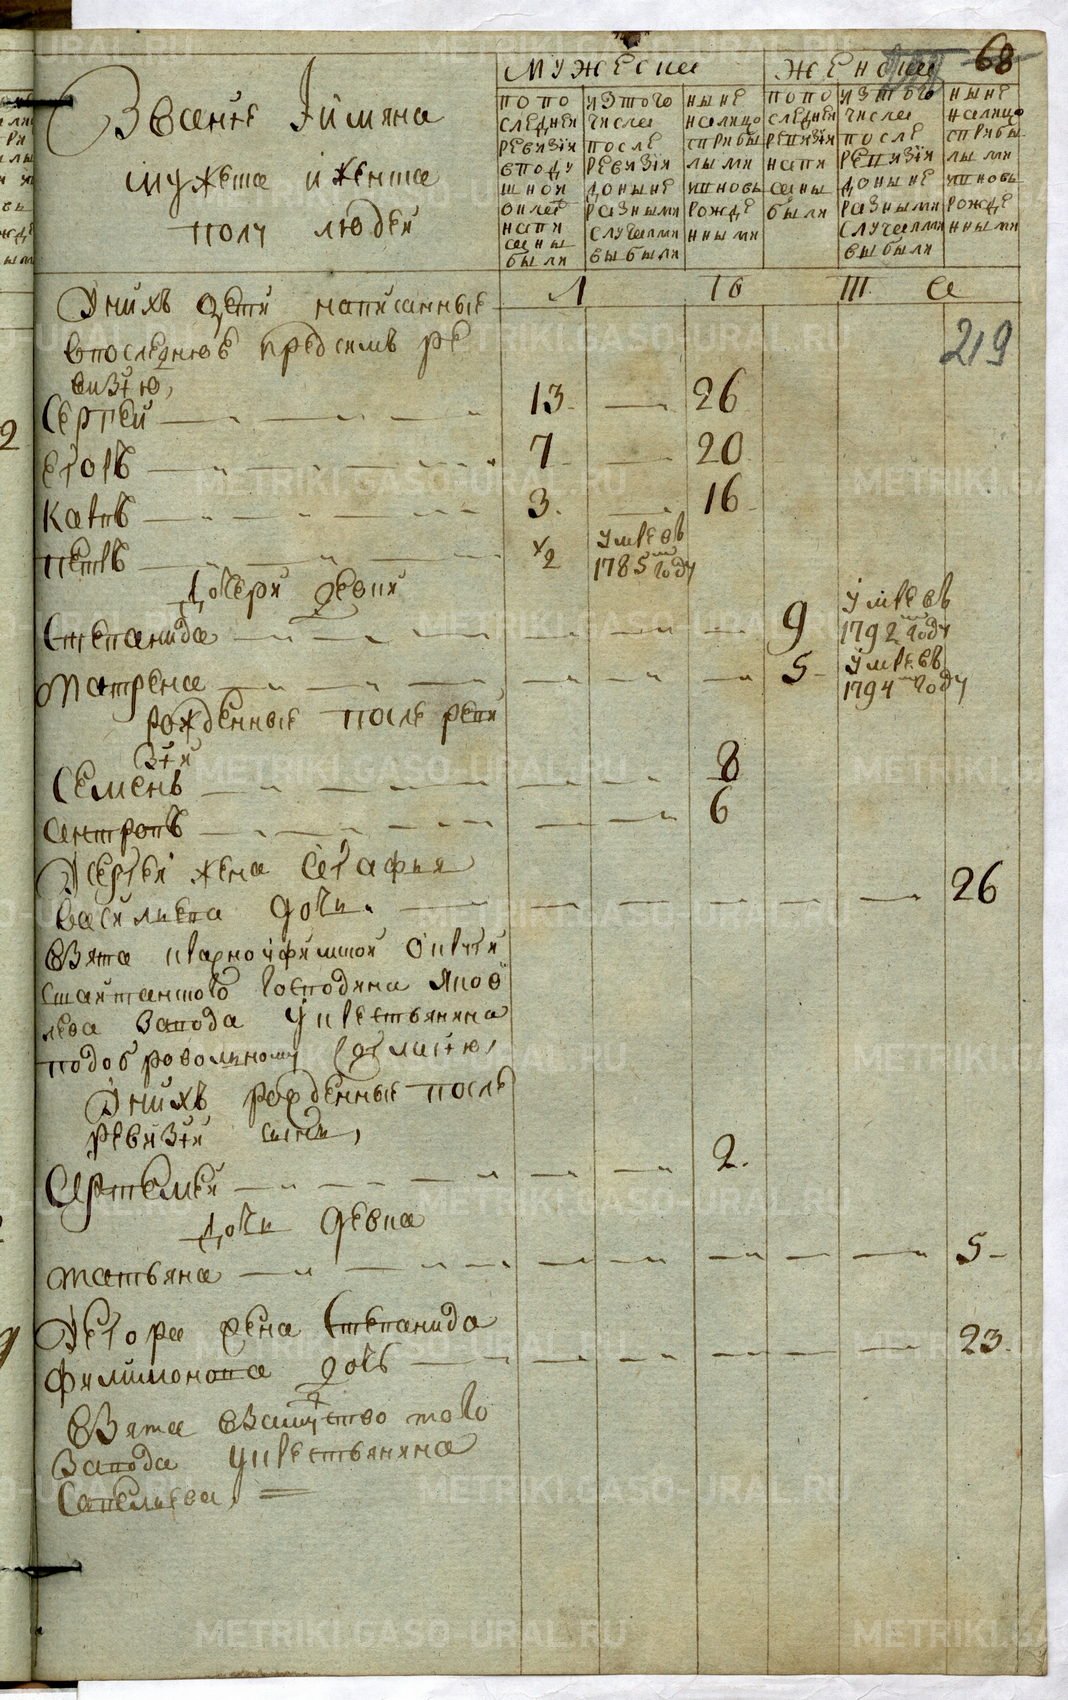 68
Звание Iимяна
мужеска иженска
полу людей
мужески
женски
попо
следней
ревизiи
вподу
шной
окладъ
напи
саны
были
изтого
числа
после
ревизiи
доныне
разными
случаями
выбыли
ныне
налицо
сприбы
лыми
ивновь
рожде
нными
попо
следней
ревизiи
напи
саны
были
изтого
числа
после
ревизiи
доныне
разными
случаями
выбыли
ныне
налицо
сприбы
лыми
ивновь
рожде
нными
219
Унихъ дети написанные
впоследнюю предсимъ ре
визiю,
Сергей 13 26
Егоръ 7 20
Карпъ 3 16
Петръ 1/2 умре въ
1785 м году
Дочери девки
Степанида 9 умре въ
1792 м году
Матрена 5 умре въ
1794 м году
рожденные после реви
зiи
Семенъ 8
Антропъ 6
Усергея жена Агафья
Васильева дочь 26
Взята
шайтанского Господина Яков
лева Завода Укрестьянина
подобровольному согласiю,
Унихъ рожденные после
ревизiи сынъ,
Артемей 2
Дочь девка
Татьяна 5
Уегора жена Степанида
Филимонова дочь 23
Взята взамужство того
Завода укрестьянина
Савельева,